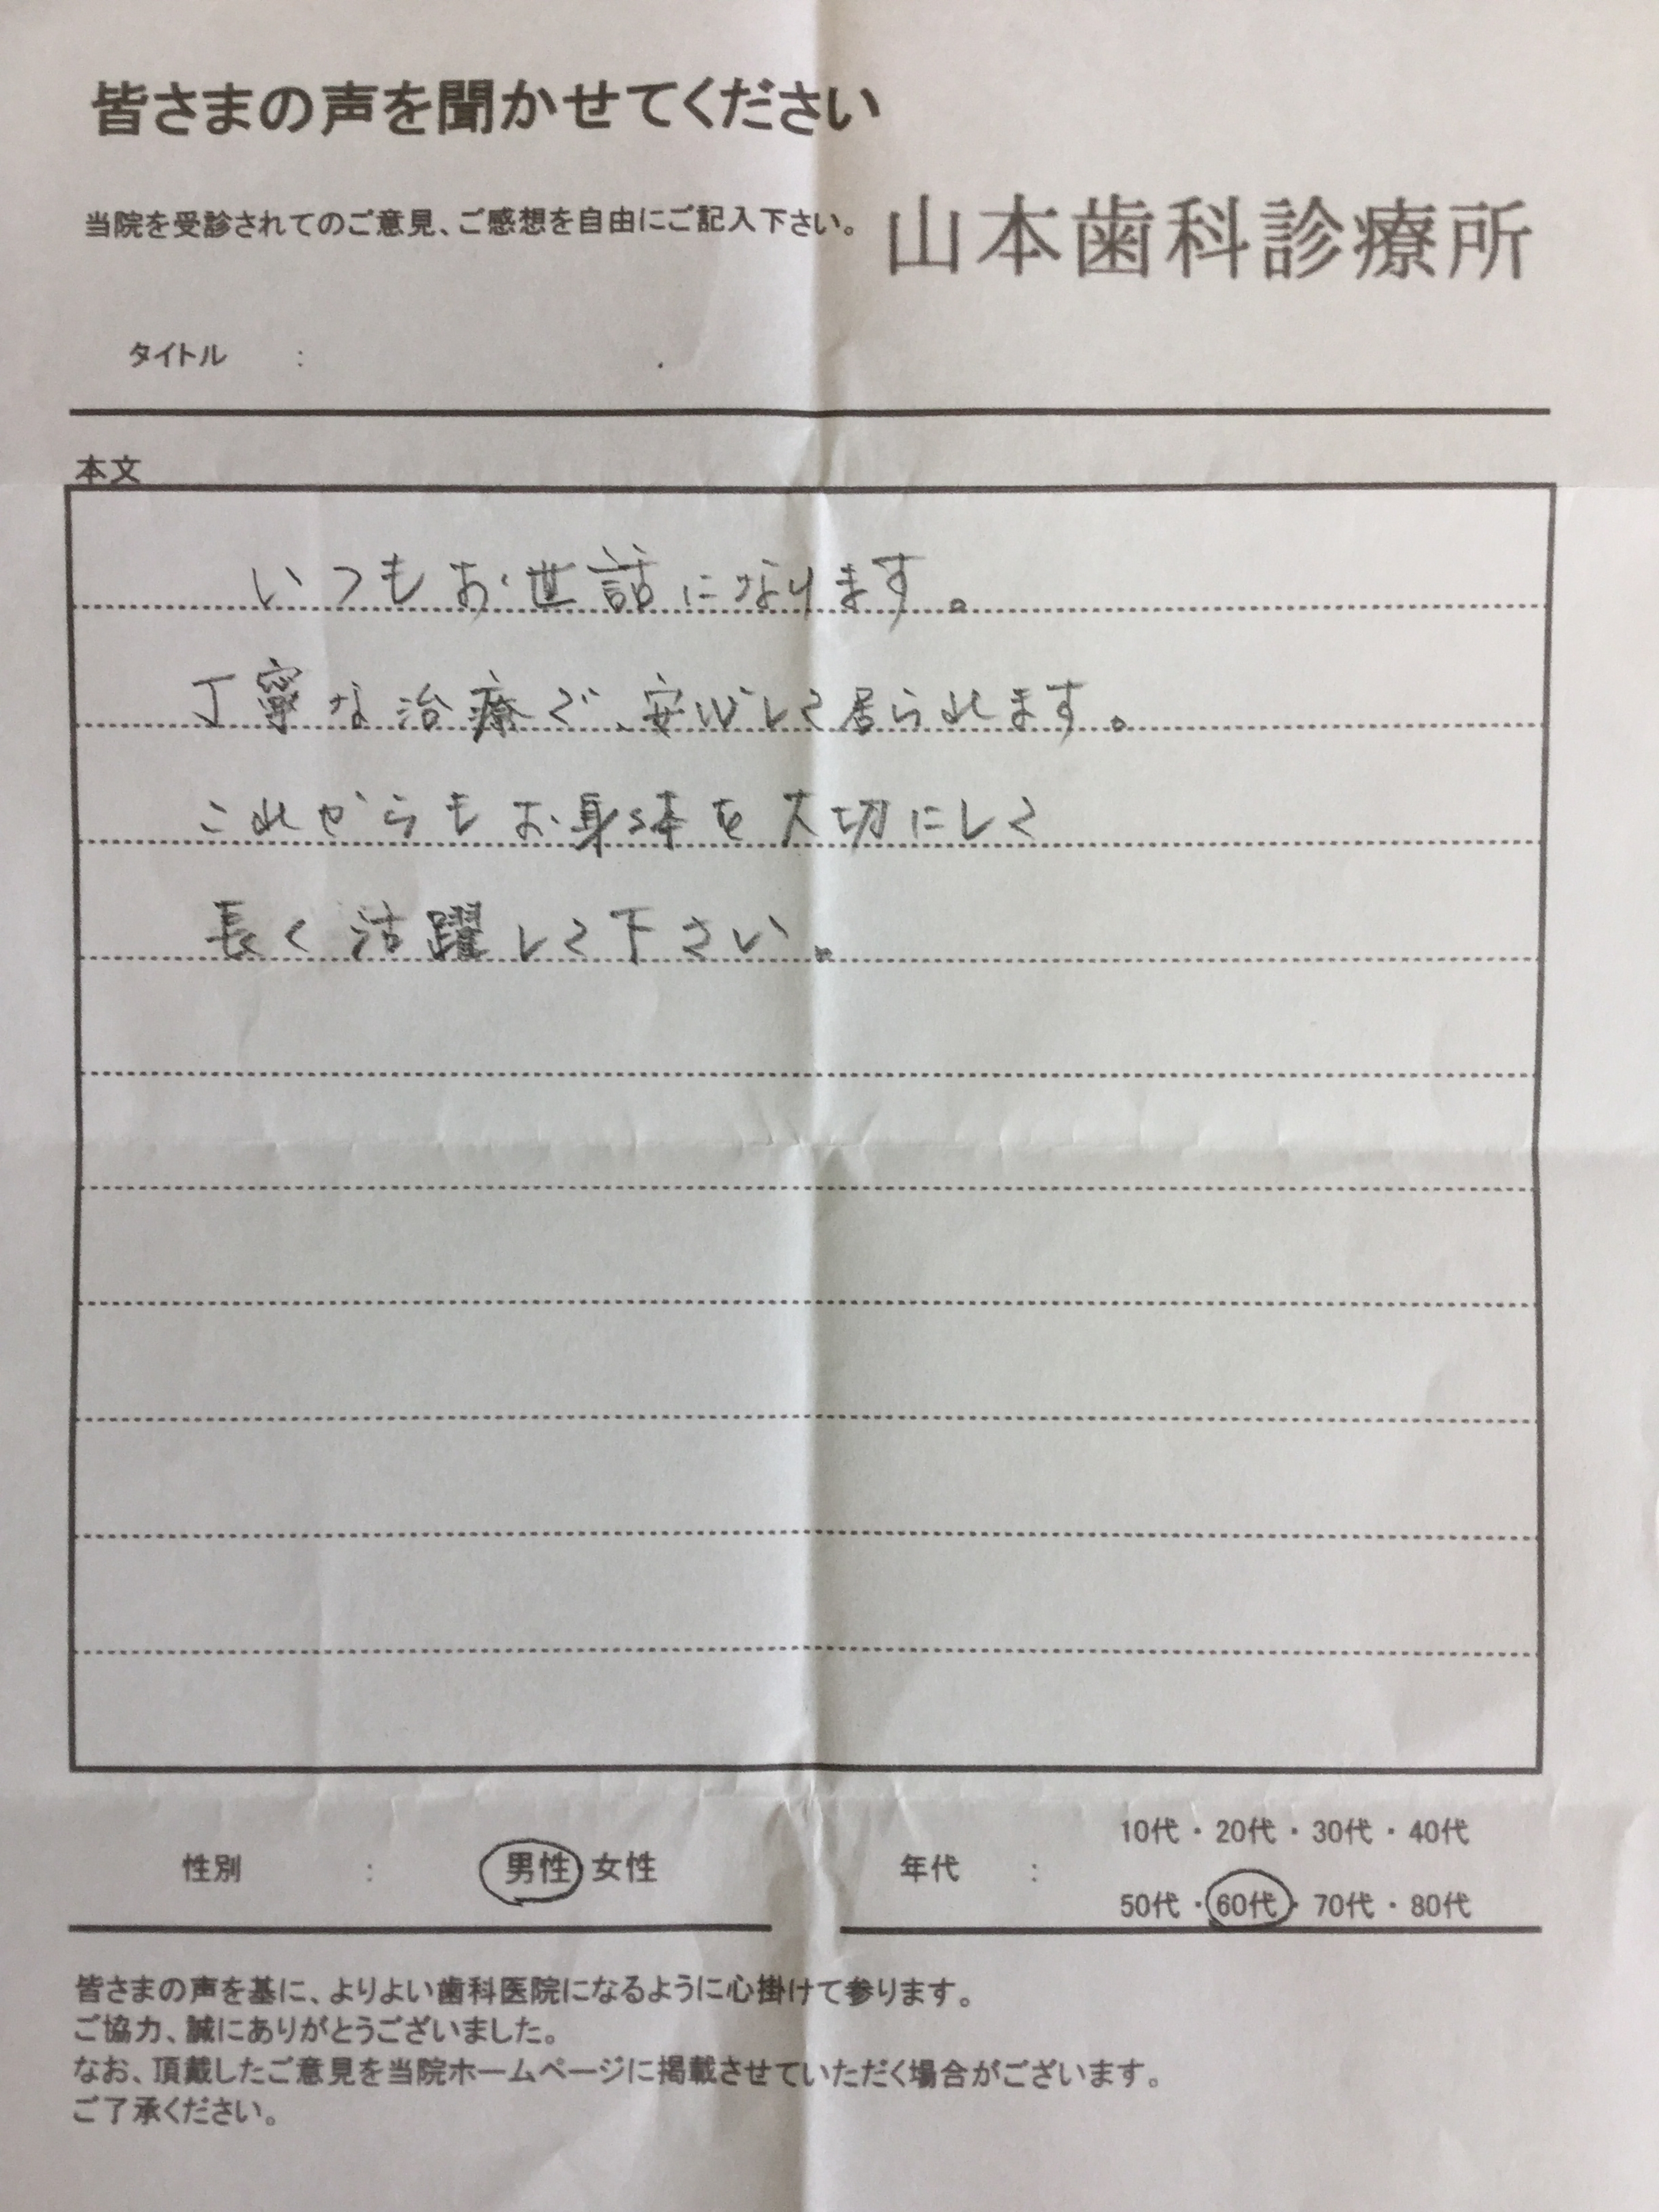 皆さまの声を聞かせてください
当院を受診されてのご意見、ご感想を自由にご記入下さい。
山本歯科診療所
タイトル :
本文
いつもお世話になります。
丁寧な治療で、安心して居られます。
これからもお身体を大切にして
長く活躍して下さい。
性別 : 男性 女性
年代 : 10代・20代・30代・40代
50代・60代・70代・80代
皆さまの声を基に、よりよい歯科医院になるように心掛けて参ります。
ご協力、誠にありがとうございました。
なお、頂戴したご意見を当院ホームページに掲載させていただく場合がございます。
ご了承ください。